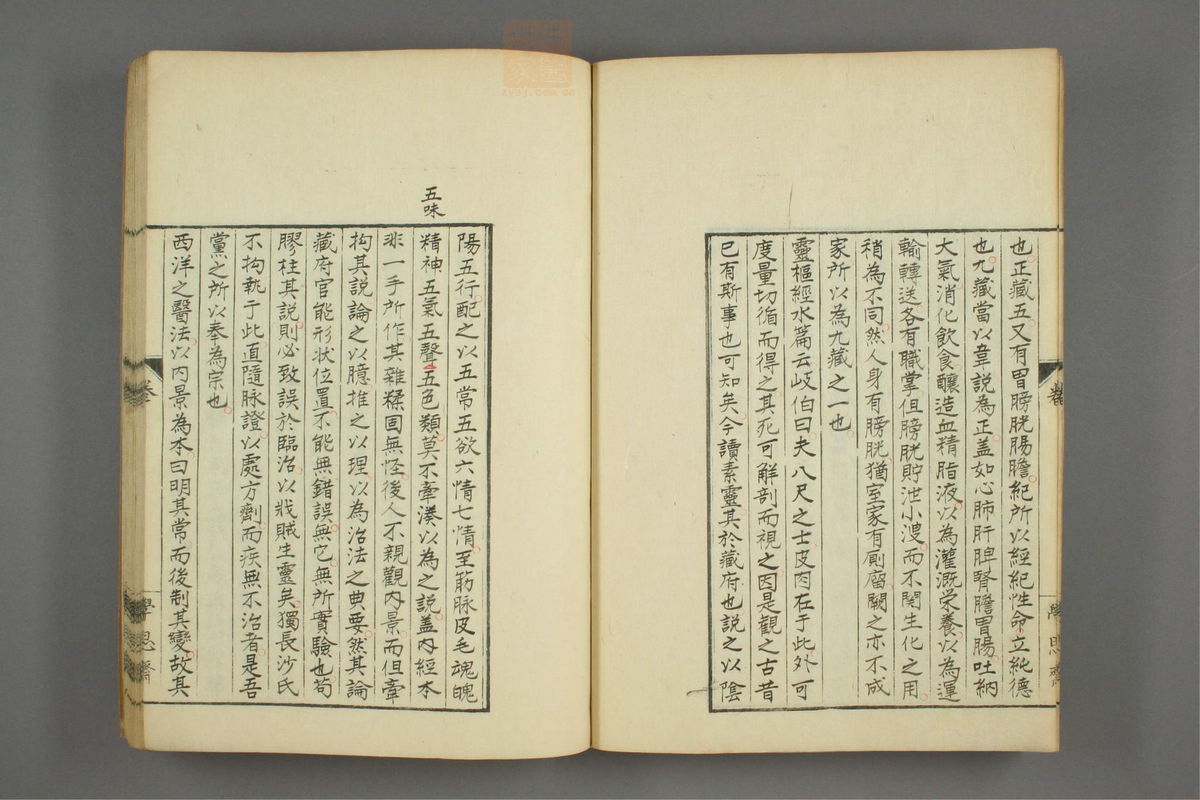 也正藏五又有胃膀胱腸膽紀所以經紀性命立純德
也九藏當以韋說為正盖如心肺肝脾腎膽胃腸吐納
大氣消化飲食釀造血精脂液以為灌溉榮養以為運
輸轉送各有職掌但膀胱貯泄小溲而不関生化之用
稍為不同然人身有膀胱猶室家有廁庿闕之亦不成
家所以為九藏之一也
靈樞經水篇云岐伯曰夫八尺之士皮肉在于此外可
度量切循而得之其死可解剖而視之因是觀之古昔
已有斯事也可知矣今讀素靈其於藏府也說之以陰
學思齋
五味
陽五行配之以五常五欲六情七情至筋脉皮毛魂魄
精神五氣五聲五色類莫不牽湊以為之說盖內經本
非一手所作其雜糅固無怪後人不親觀內景而但牽
拘其說論之以臆推之以理以為治法之典要然其論
藏府官能形状位置不能無錯誤無它無所實驗也苟
膠柱其說則必致誤於臨治以戕賊生靈矣獨長沙氏
不拘執于此直隨脉證以處方劑而疾無不治者是吾
黨之所以奉為宗也
西洋之醫法以內景為本曰明其常而後制其變故其
學思齋